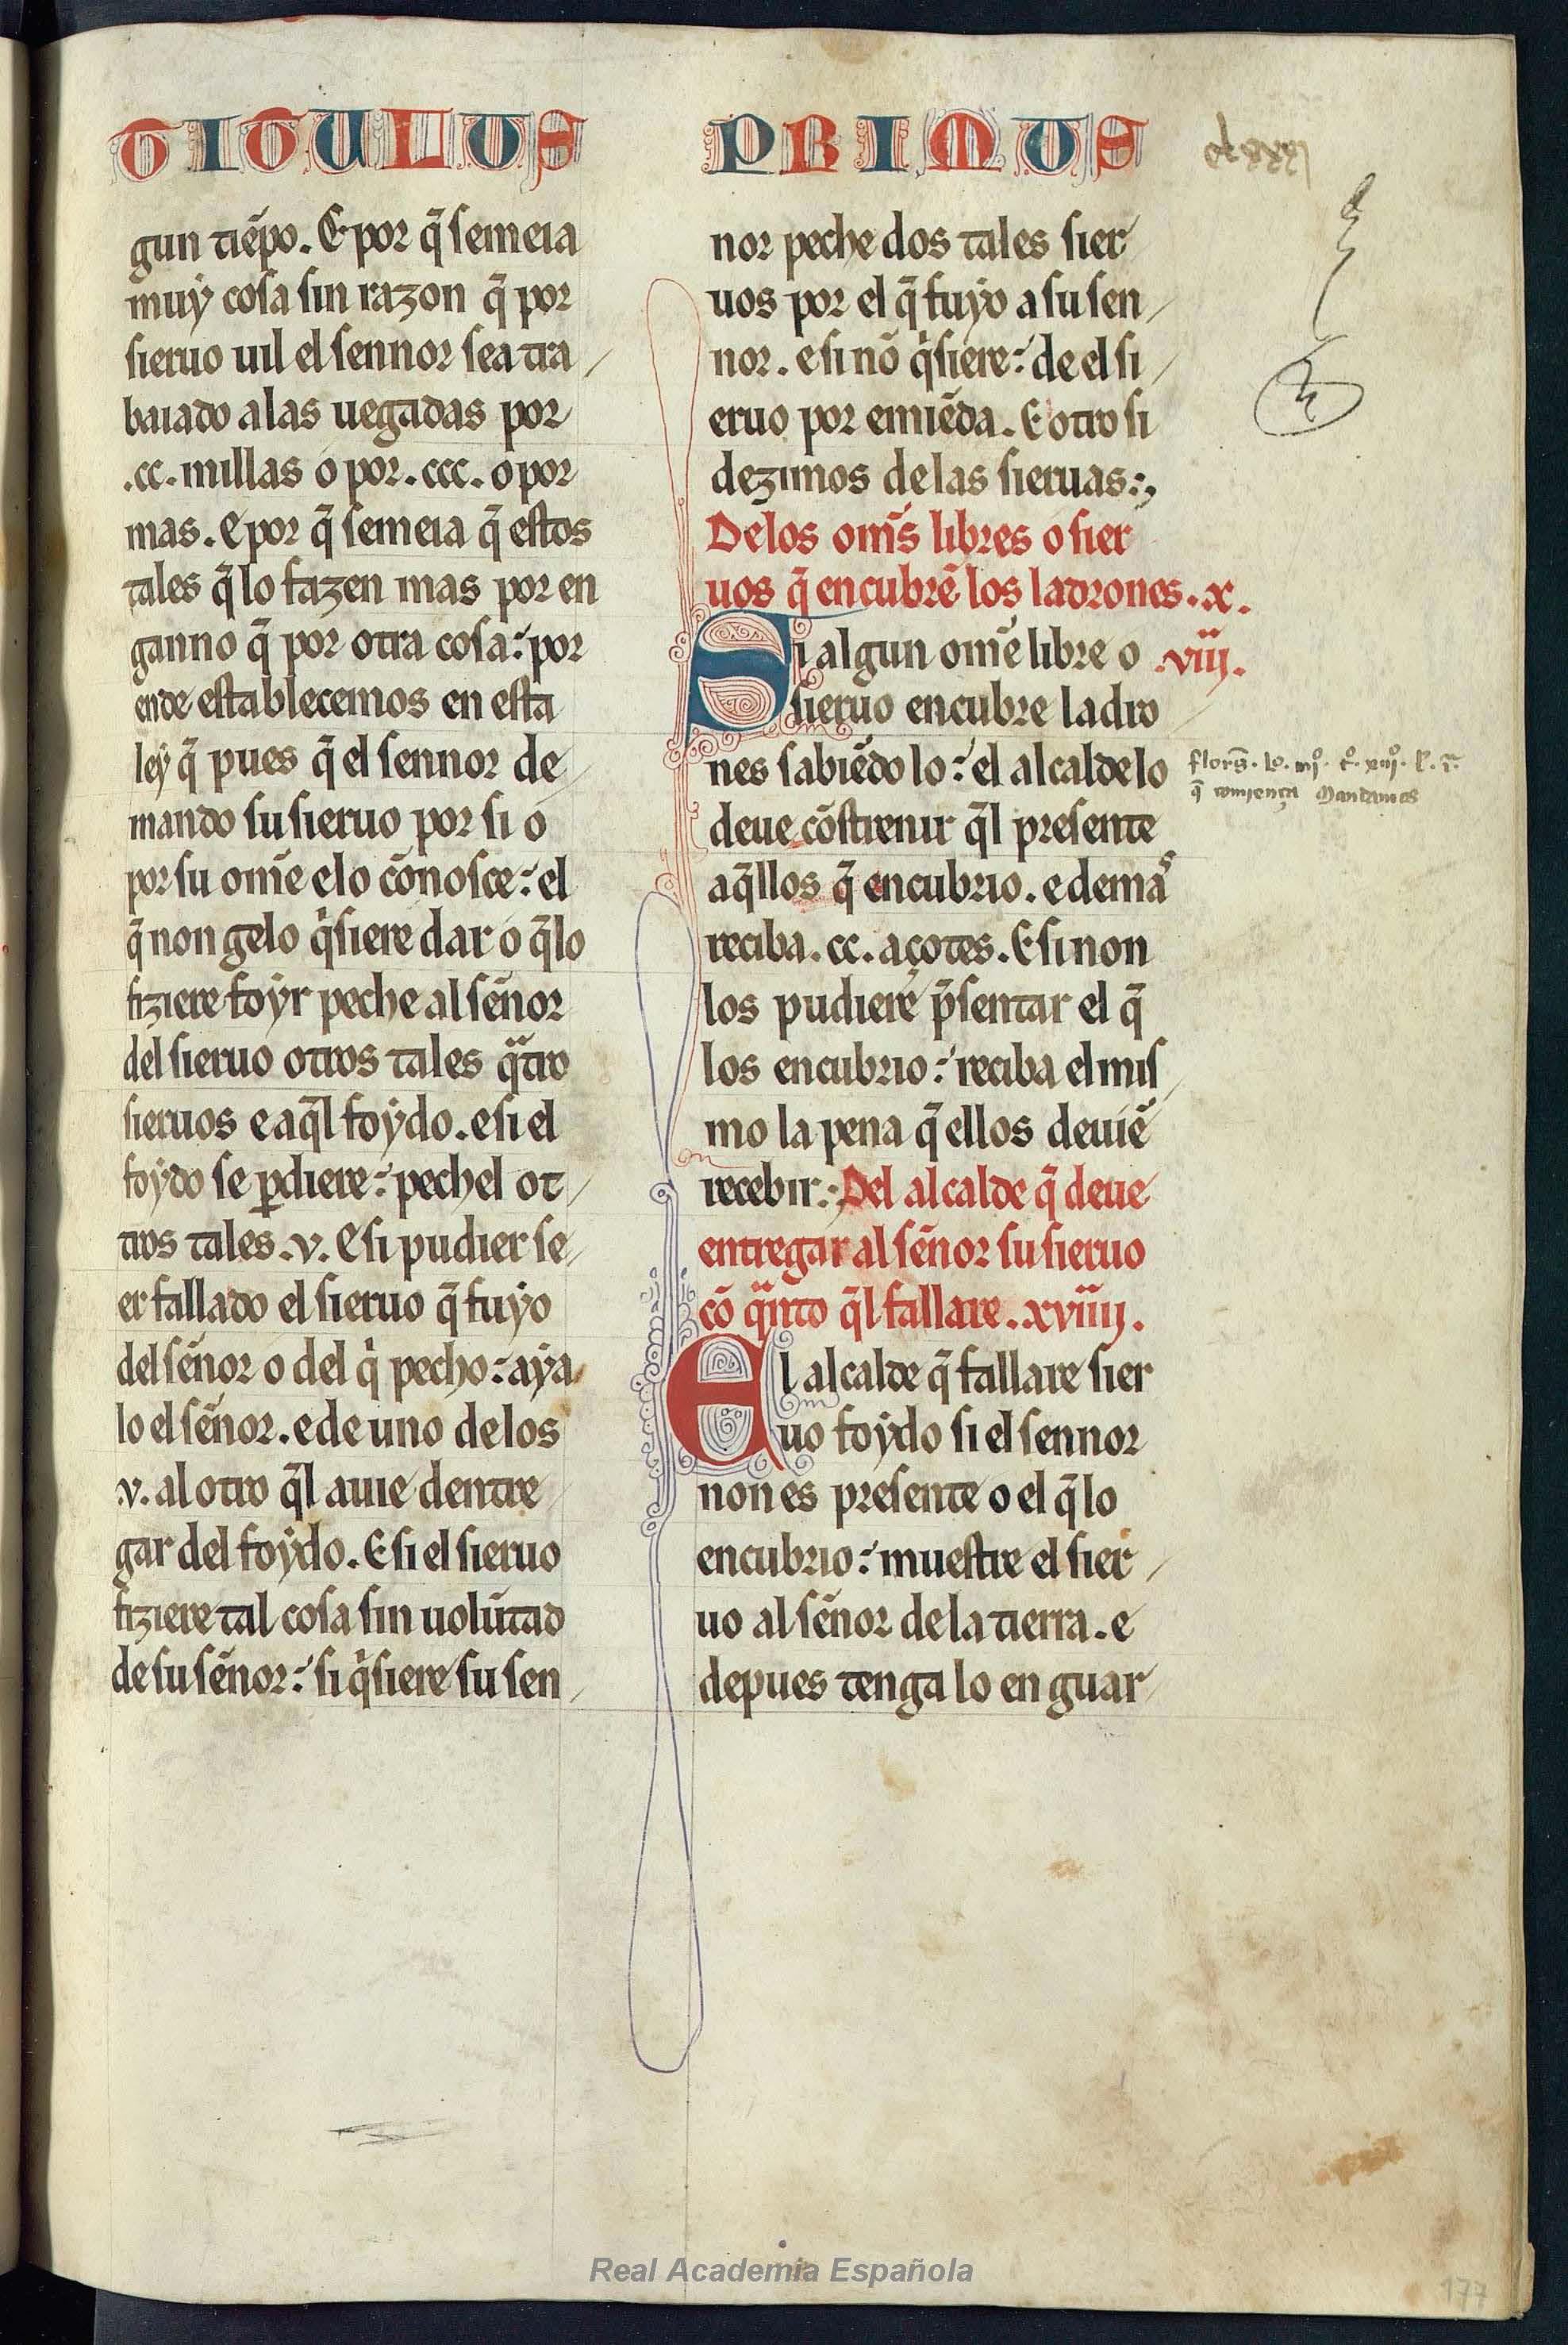 TITULUS PRIMUS
gun tiẽpo. E por q̃ semeia
muẏ cosa sin razon q̃ por
sieruo uil el sennor sea tra
baiado a las uegadas por
.cc. millas o por .ccc. o por
mas. E por q̃ semeia q̃ estos
tales q̃ lo fazen mas por en
ganno q̃ por otra cosa: por
ende establecemos en esta
leẏ q̃ pues q̃ el sennor de
mando su sieruo por si o
por su om̃e e lo cõnosce: el
q̃ non gelo q̇siere dar o q̃ lo
fiziere foẏr peche al sẽnor
del sieruo otros tales qᷓtro
sieruos e aq̃l foẏdo. e si el
foẏdo se ꝑdiere: pechel ot
tros tales .v. E si pudier se
er fallado el sieruo q̃ fuẏo
del sẽnor o del q̇ pecho: aẏa
lo el sẽnor. e de uno de los
.v. al otro q̃l auie dentre
gar del foẏdo. E si el sieruo
fiziere tal cosa sin uolũtad
de su sẽnor: si q̇siere su sen
nor peche dos tales sier
uos por el q̃ fuẏo a su sen
nor. e si nõ q̇siere: de el si
eruo por emiẽda. E otro si
dezimos de las sieruas:
De los om̃s libres o sier
uos q̃ encubrẽ los ladrones. x.
viii.
Si algun om̃e libre o
sieruo encubre ladro
nes sabiẽdo lo: el alcalde lo
deue cõstrenir q̃l presente
aq̃llos q̃ encubrio. e demas
reciba .cc. açotes. E si non
los pudierẽ p̃sentar el q̃
los encubrio: reciba el mis
mo la pena q̃ ellos deuiẽ
recebir: Del alcalde q̃ deue
entregar al sẽnor su sieruo
cõ qᷓnto q̃l fallare. xviiii.
El alcalde q̃ fallare sier
uo foẏdo si el sennor
non es presente o el q̃ lo
encubrio: muestre el sier
uo al sẽnor de la tierra. e
depues tenga lo en guar
q̃ comiença Mandamos
177
Real Academia Española